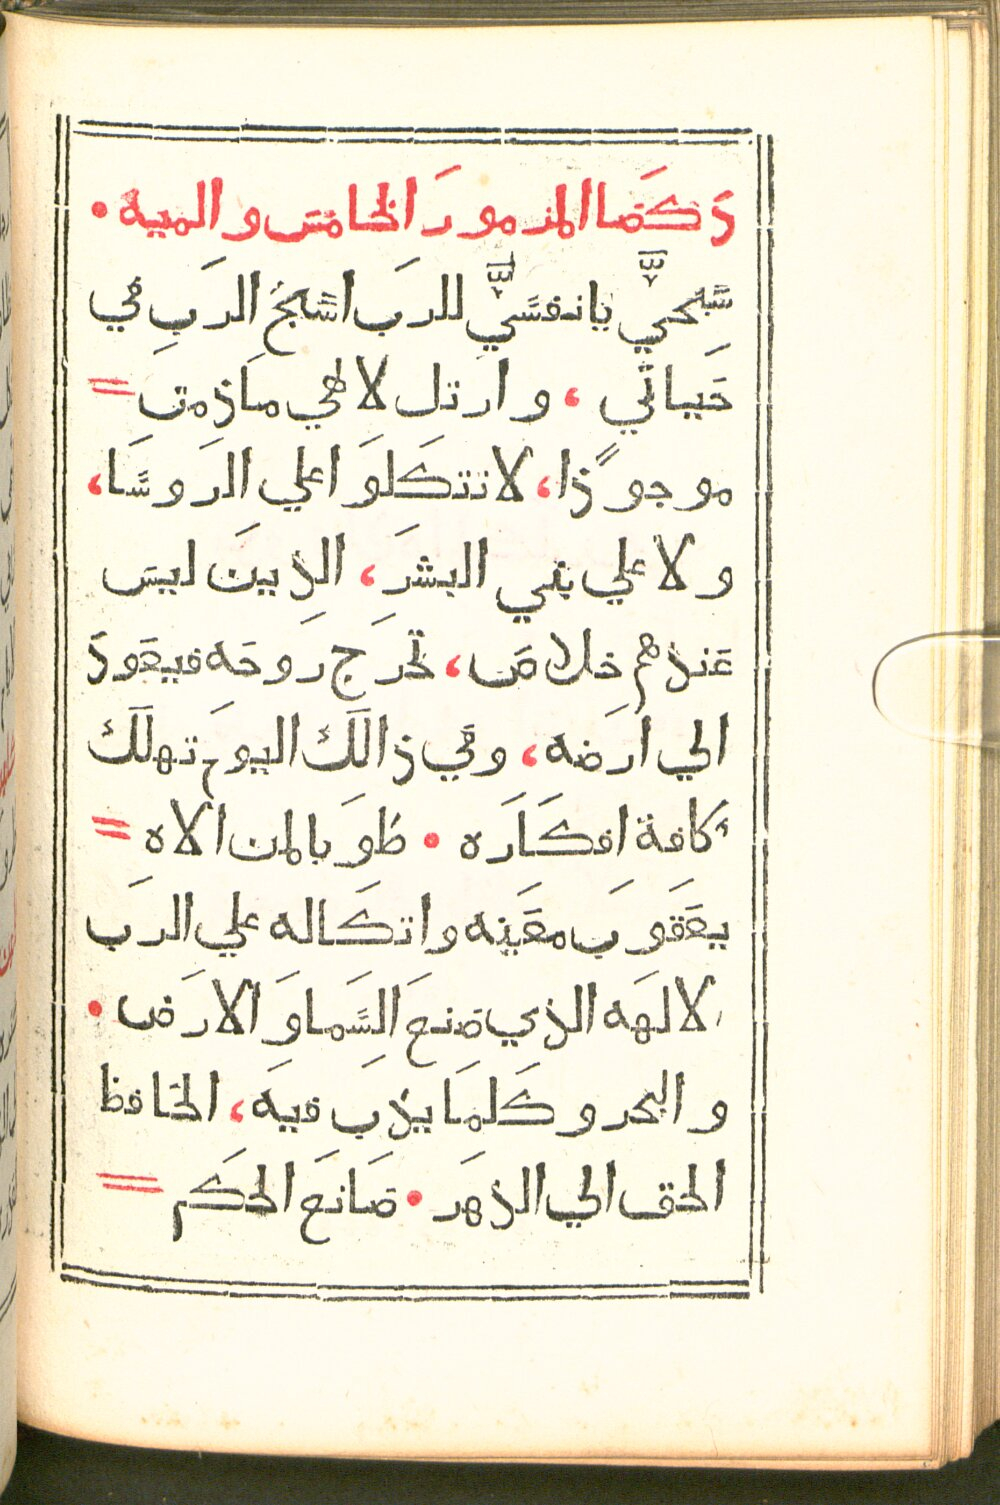 دكضا المزمور الخامس والميه •
سبحي يا نفسي للرب اسبح الرب في
حياتي ، وارتل لالهي ما زمت =
موجودا ، لا تتكلوا علي الروسا ،
ولا علي بني البشر ، الذين ليس
عندهم خلاص ، تخرج روحه فيعود
الي ارضه ، وفي ذالك اليوم تهلك
كافة افكاره • طوبا لمن الاه =
يعقوب معينه واتكاله علي الرب
الالهه الذي صنع السما والارض •
والبحر وكلما يدب فيه ، الحافظ
الحق الي الدهر • صانع الحكم =